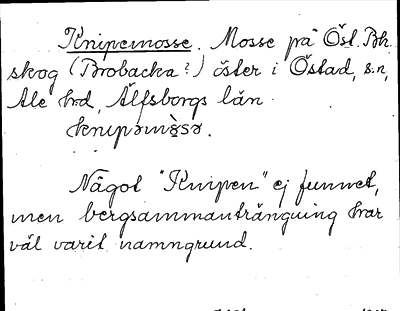 Knipemosse. Mosse på Östl. Bh.
skog (Brobacka?) öster i Östad, s.n,
Ale hrd, Älfsborgs län.
knipəmòsə.
Något "Knipen" ej funnet,
men bergsammanträngning har
väl varit namngrund.